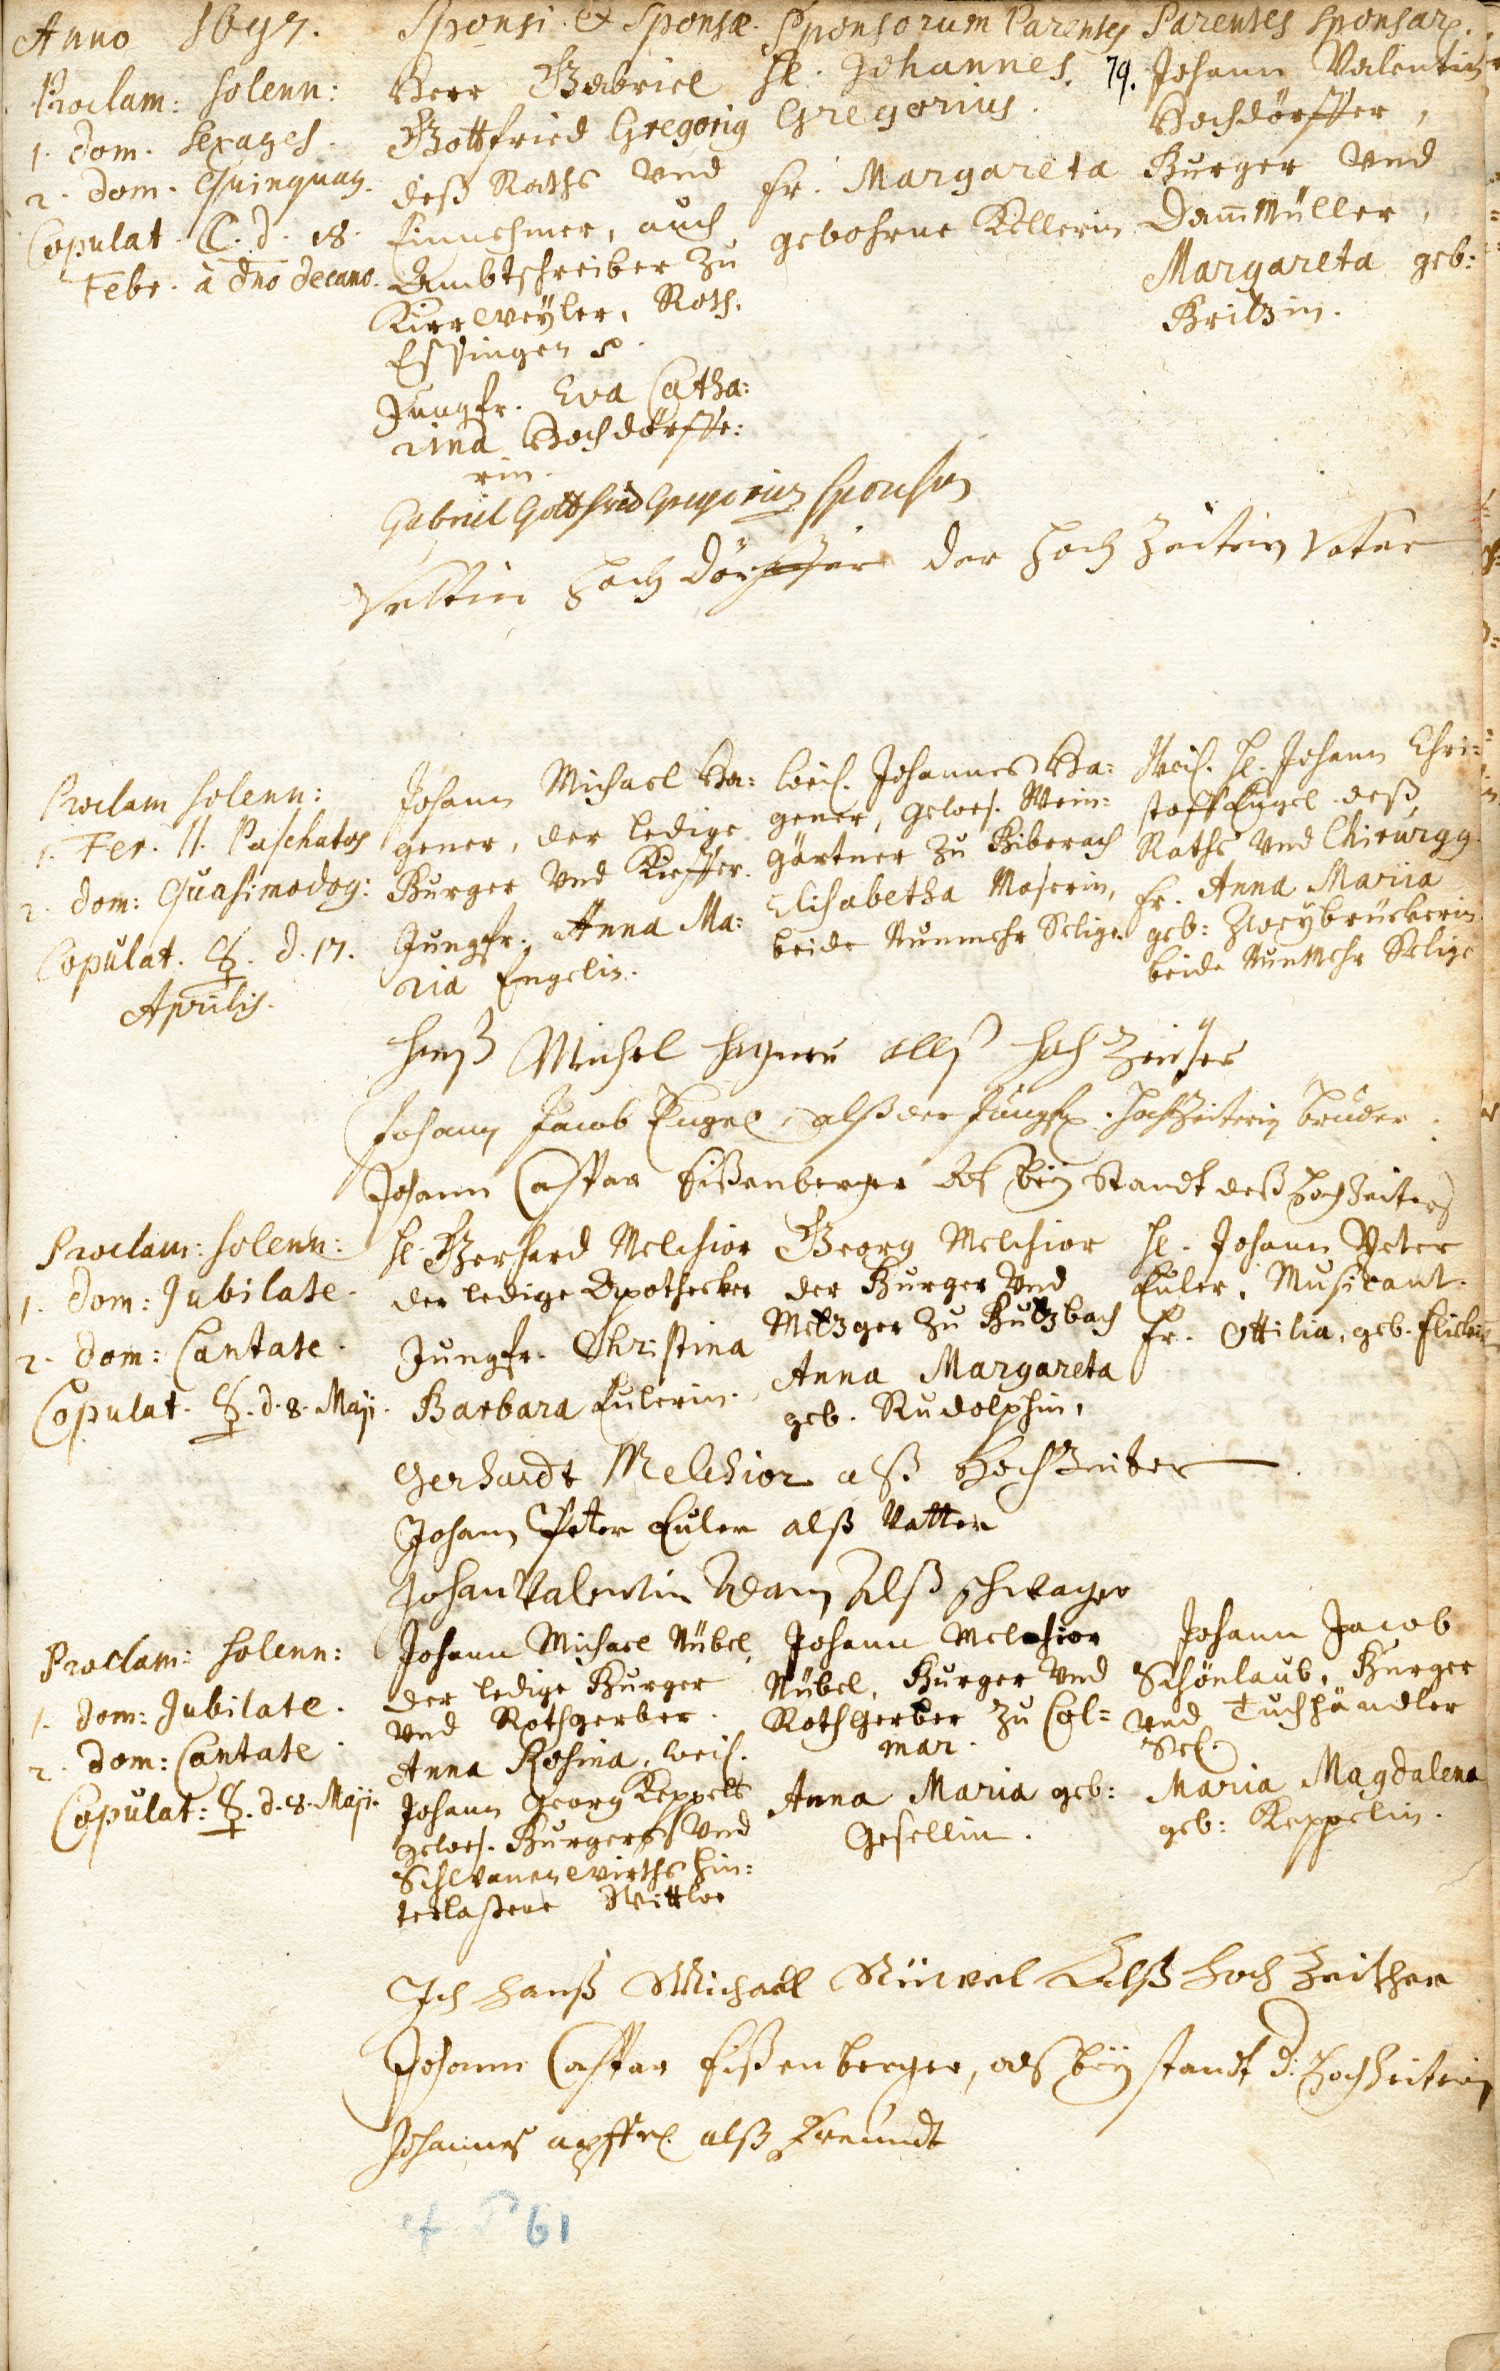 Anno 1697. Sponsi & Sponsæ. Sponsorum Parentes Parentes Sponsar.
79.
Proclam: solenn:
1. Dom. Sexages.
2. Dom. Quinquag.
Copulat. ☾. d. 18.
Febr. à dno decano.
Herr Gabriel
Gottfried Gregorig
deß Raths Und
Einnehmer, auch
Ambtschreiber Zu
Kirrweÿler, Roth,
Essingen
Jungfr. Eva Catha:
rina Hochdörffe:
rin.
H. Johannes
Gregorius.
Fr. Margareta
gebohrne Kellerin
Johann Valentin
Hochdörffer,
Burger Und
Dam̅Müller,
Margareta geb:
Britzin.
Gabriel Gottfrid Gregorius Sponsus
Velltin Hoch dörffer der Hoch Zeiterin Vatter
Proclam solenn:
1. Fer. II. Paschatos
2. Dom: Quasimodog:
Copulat. ☿. d. 17.
Aprilis.
Johann Michael Ha:
gener, der ledige
Burger Und Kieffer.
Jungfr. Anna Ma:
ria Engelin.
Weil. Johannes Ha:
gener, gewes. Wein:
gärtner Zu Biberach
Elisabetha Moserin,
beide Nunmehr Selige
Weil. H. Johann Chri:
stoff Engel deß
Raths Und Chirurgg.
Fr. Anna Maria
geb: Zweÿbrückerin
beide NunMehr Selige
Hanß Michel Hagner allß Hoch Zeiter
Johann Jacob Engel, alß der Jungfr. HochZeiterin bruder
Johann Caspar Eißenberger als beÿ Standt deß HochZeiters
Proclam: solenn:
1. Dom: Jubilate.
2. Dom: Cantate.
Copulat. ☿. d. 8. Maji.
H. Gerhard Melchior
der ledige Apothecker
Jungfr. Christina
Barbara Eulerin.
Georg Melchior
der Burger Und
Metzger Zu Butzbach
Anna Margareta
geb. Rudolphin,
H. Johann Peter
Euler, Musicant.
Fr. Ottilia, geb. Flickin
Gerhardt Melchior alß HochZeiter
Johann Peter Euler alß Vatter
Johan Valentin Adam Alß schwager
Proclam: solenn:
1. Dom: Jubilate.
2. Dom: Cantate.
Copulat: ☿. d. 8. Maji.
Johann Michael Nübel,
der ledige Burger
Und Rothgerber.
Anna Rosina, weil.
Johann Georg Keppels
gewes. Burgers Und
Schwanenwirths hin:
terlaßene Wittwe
Johann Melchior
Nübel, Burger Und
Rothgerber Zu Col=
mar.
Anna Maria geb:
Gesellin.
Johann Jacob
Schönlaub, Burger
Und Tuchhändler
Sel.
Maria Magdalena
geb: Keppelin.
Ich Hanß Michael Nüwel Alß Hoch Zeither
Johann Caspar Eißenberger, als beÿ standt d: HochZeiterin
Johannes apffel alß Freundt
cf P 61